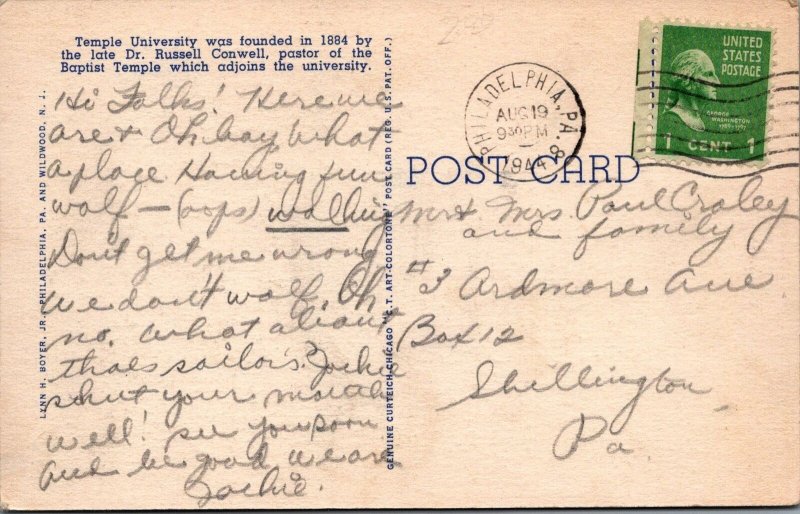 Temple University was founded in 1884 by
the late Dr. Russell Conwell, pastor of the
Baptist Temple which adjoins the university.
Hi Folks! Here we
are & Oh boy what
a place. Having fun
wolf — (oops) walking
Don't get me wrong
we don't wolf. Oh
no. what about
thoes sailors? Jackie
shut your mouth
well! see you soon
and be good we are
Jackie.
LYNN H. BOYER, JR., PHILADELPHIA, PA. AND WILDWOOD, N. J.
GENUINE CURTEICH-CHICAGO "C.T. ART-COLORTONE" POST CARD (REG. U.S. PAT. OFF.)
POST CARD
PHILADELPHIA, PA. 8
AUG 19
930 PM
1944
UNITED
STATES
POSTAGE
GEORGE
WASHINGTON
1789-1797
1 CENT 1
Mr & Mrs. Paul Craley
and family
#3 Ardmore Ave
Box 12
Shillington
Pa.